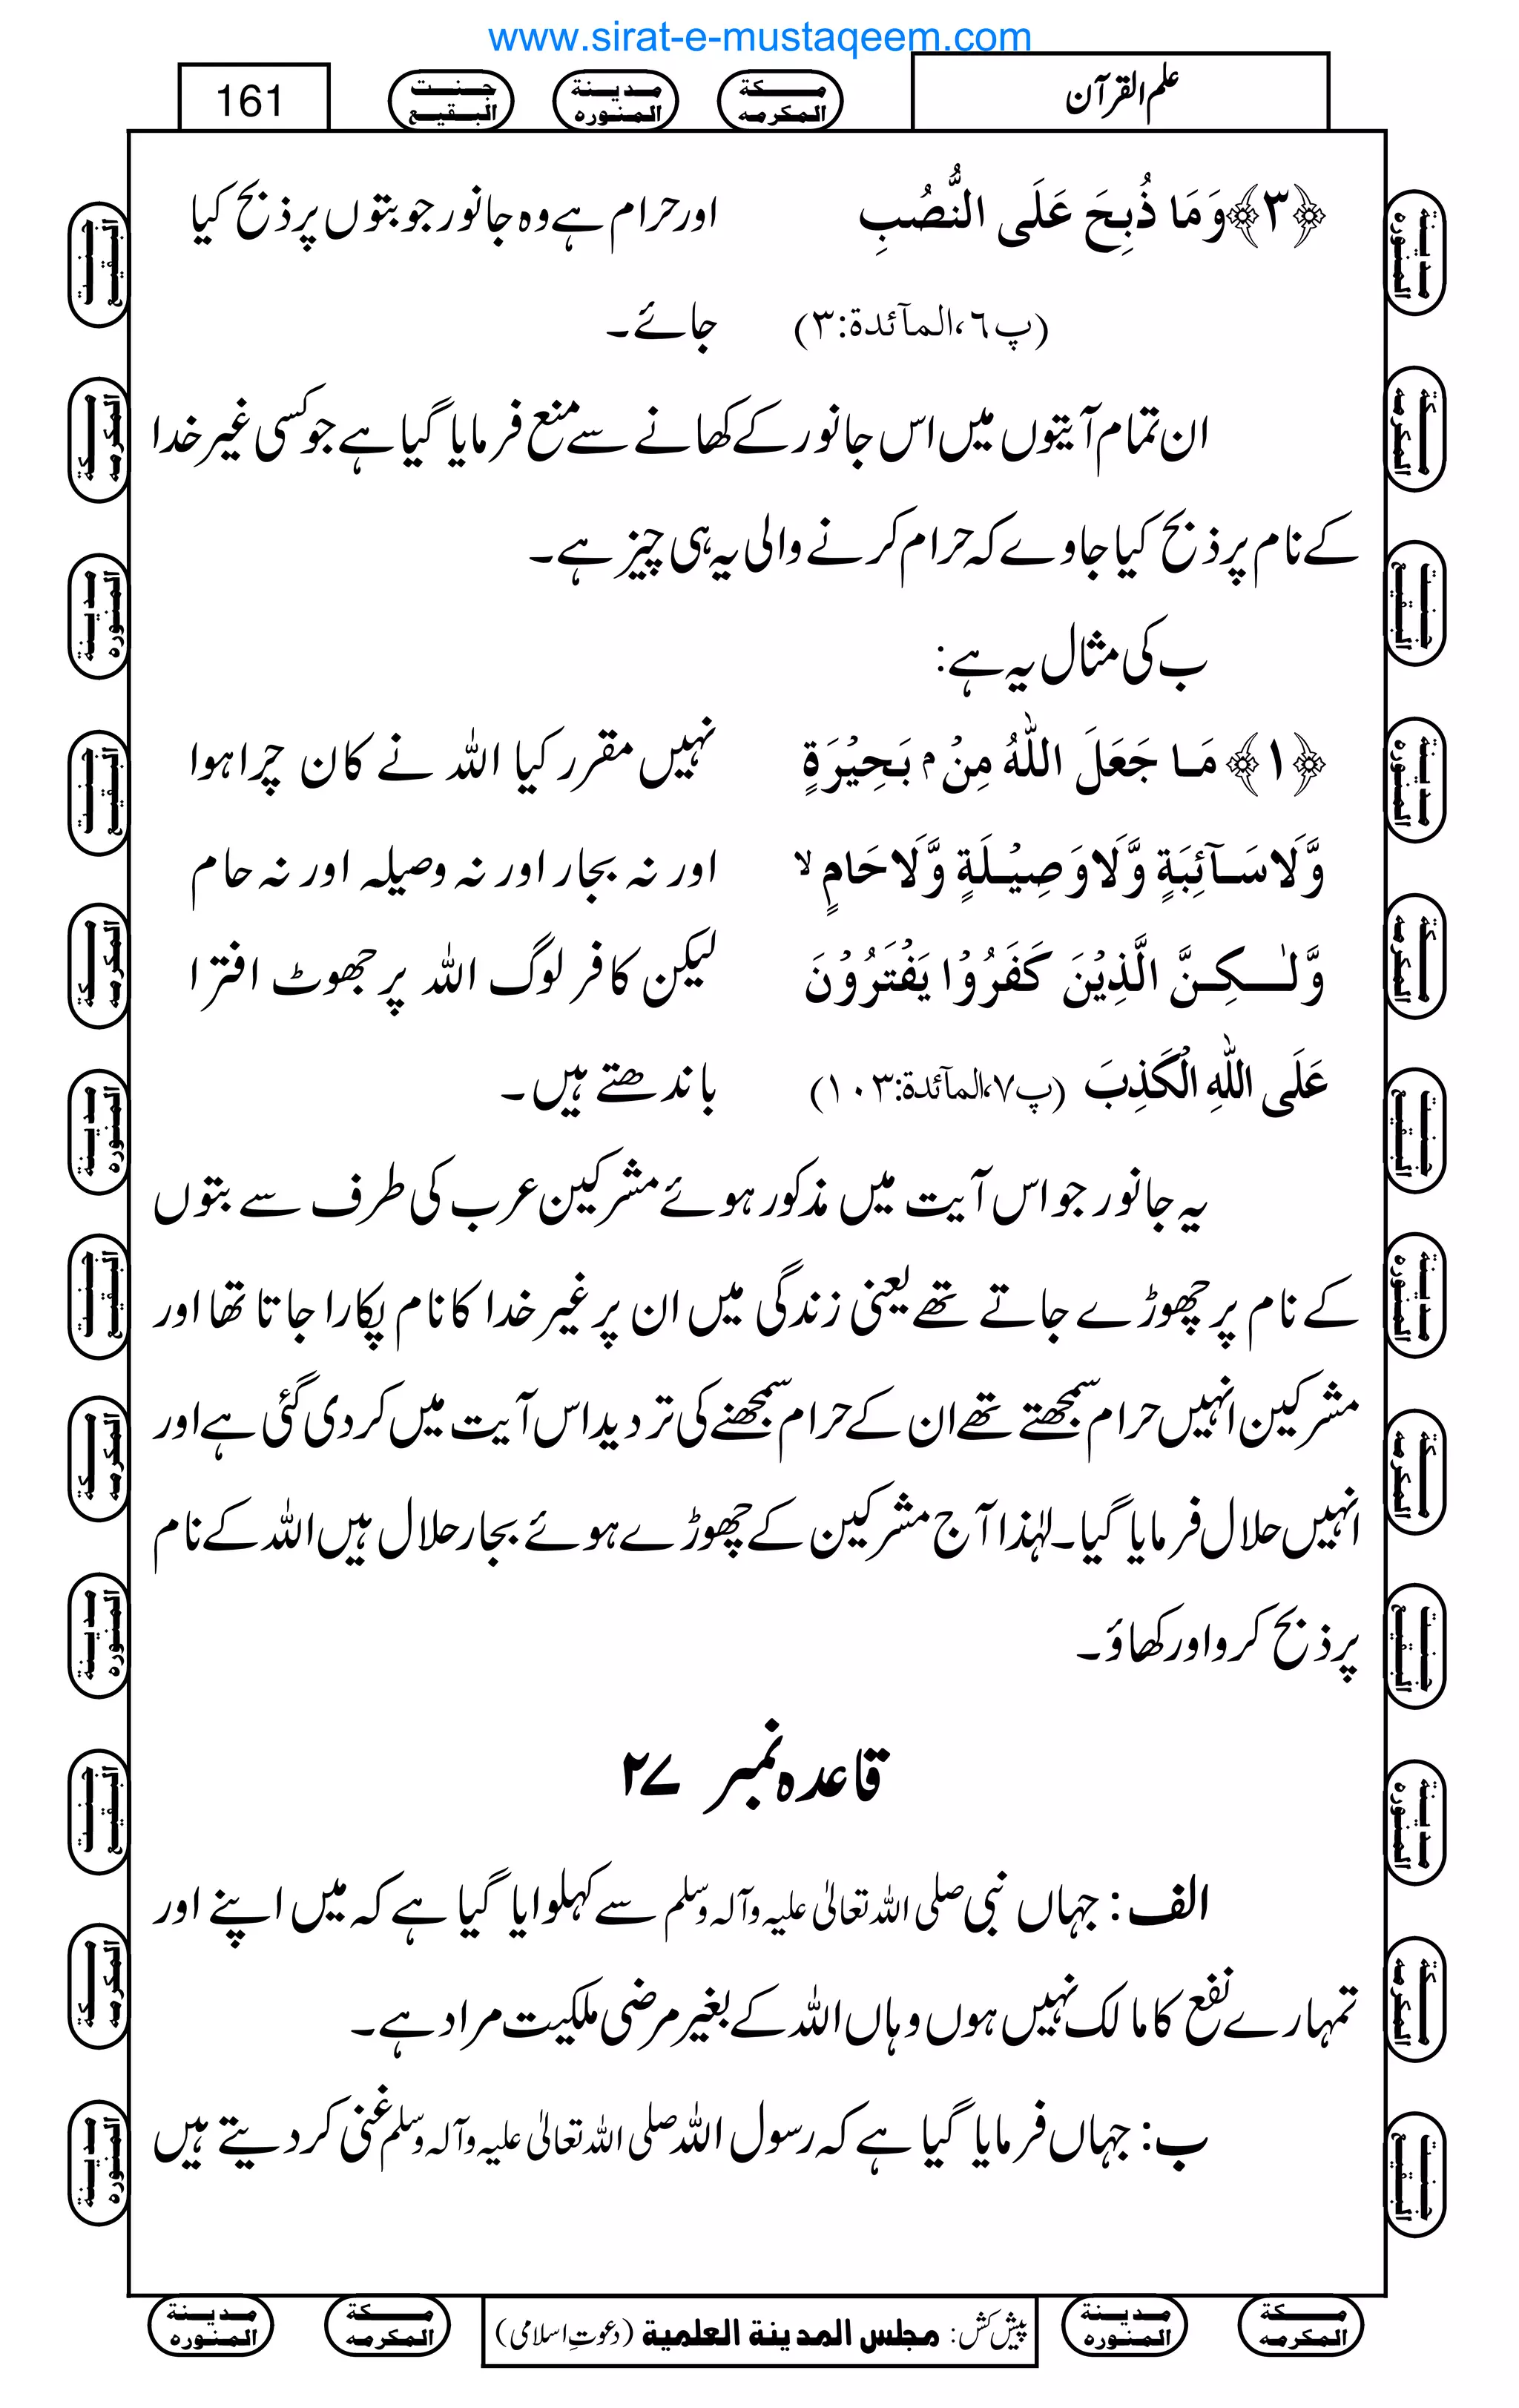 www.sirat-e-mustaqeem.com
علم القرآن
مكة المكرمه
مدينة المنوره
جنت البقيع
161
﴿۳﴾وَمَا ذُبِحَ عَلَى النُّصُبِ اور حرام ہے وہ جانور جو بتوں پر ذبح کیا
(پ٦،المآئدة:۳) جائے۔
ان تمام آیتوں میں اس جانور کے کھانے سے منع فرمایا گیا ہے جو کسی غیر خدا
کے نام پر ذبح کیا جاوے کہ حرام کرنے والی یہ ہی چیز ہے۔
ب کی مثال یہ ہے:
﴿۱﴾ مَا جَعَلَ اللّٰهُ مِنْۢ بَحِيْرَةٍ نہیں مقرر کیا اللہ نے کان چرا ہوا
وَّلَا سَآئِبَةٍ وَّلَا وَصِيْلَةٍ وَّلَا حَامٍ ۙ اور نہ بجار اور نہ وصیلہ اور نہ حام
وَّلٰكِنَّ الَّذِيْنَ كَفَرُوْا يَفْتَرُوْنَ لیکن کافر لوگ اللہ پر جھوٹ افترا
عَلَى اللّٰهِ الْكَذِبَ (پ۷،المآئدة:۱۰۳) باندھتے ہیں۔
یہ جانور جو اس آیت میں مذکور ہوئے مشرکین عرب کی طرف سے بتوں
کے نام پر چھوڑے جاتے تھے یعنی زندگی میں ان پر غیر خدا کا نام پکارا جاتا تھا اور
مشرکین انہیں حرام سمجھتے تھے ان کے حرام سمجھنے کی تردید اس آیت میں کردی گئی ہے اور
انہیں حلال فرمایا گیا۔ لہٰذا آج مشرکین کے چھوڑے ہوئے بجار حلال ہیں اللہ کے نام
پر ذبح کرو اور کھاؤ۔
قاعدہ نمبر ۲۷
الف: جہاں نبی صلی اللہ تعالیٰ علیہ وآلہ وسلم سے کہلوایا گیا ہے کہ میں اپنے اور
تمہارے نفع کا مالک نہیں ہوں وہاں اللہ کے بغیر مرضی ملکیت مراد ہے۔
ب: جہاں فرمایا گیا ہے کہ رسول اللہ صلی اللہ تعالیٰ علیہ وآلہ وسلم غنی کردیتے ہیں
مكة المكرمه
مدينة المنوره
پیش کش: مجلس المدينة العلمية (دعوتِ اسلامی)
مكة المكرمه
مدينة المنوره